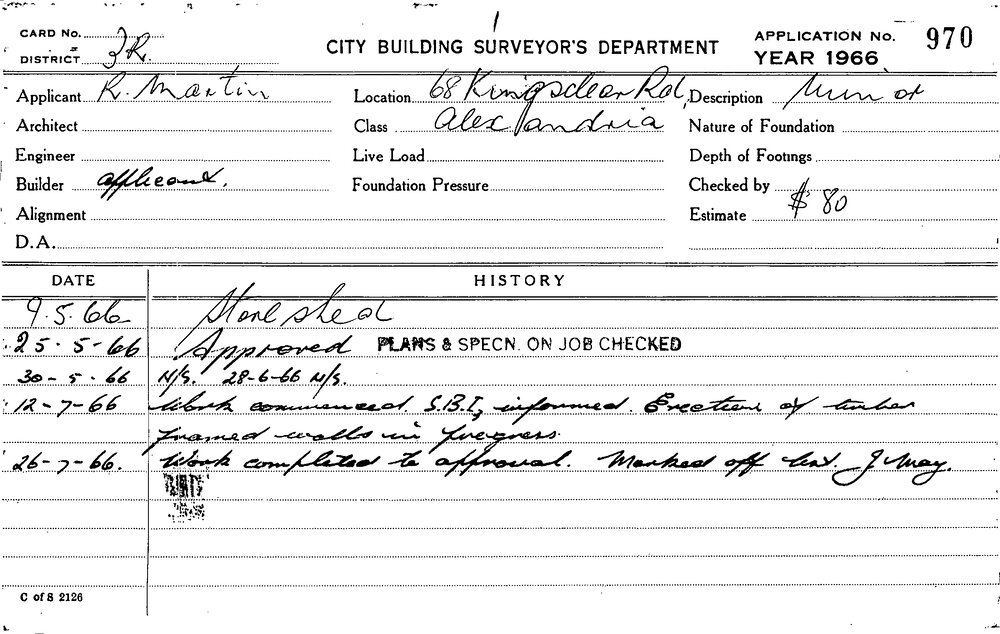 CARD No.
DISTRICT 3R.
CITY BUILDING SURVEYOR'S DEPARTMENT
APPLICATION No. 970
YEAR 1966
Applicant R. Martin
Location 68 Kingsclear Rd,
Description Minor
Architect
Class Alexandria
Nature of Foundation
Engineer
Live Load
Depth of Footings
Builder applicant.
Foundation Pressure
Checked by
Alignment
Estimate $ 80
D.A.
DATE HISTORY
9.5.66 Store shed
25.5-66 Approved PLANS & SPECN. ON JOB CHECKED
30-5-66 N/S. 28-6-66 N/S.
12-7-66 Work commenced. S.B.I, informed. Erection of timber
framed walls in progress.
26-7-66. Work completed to approval. Marked off list. J May.
C of S 2126